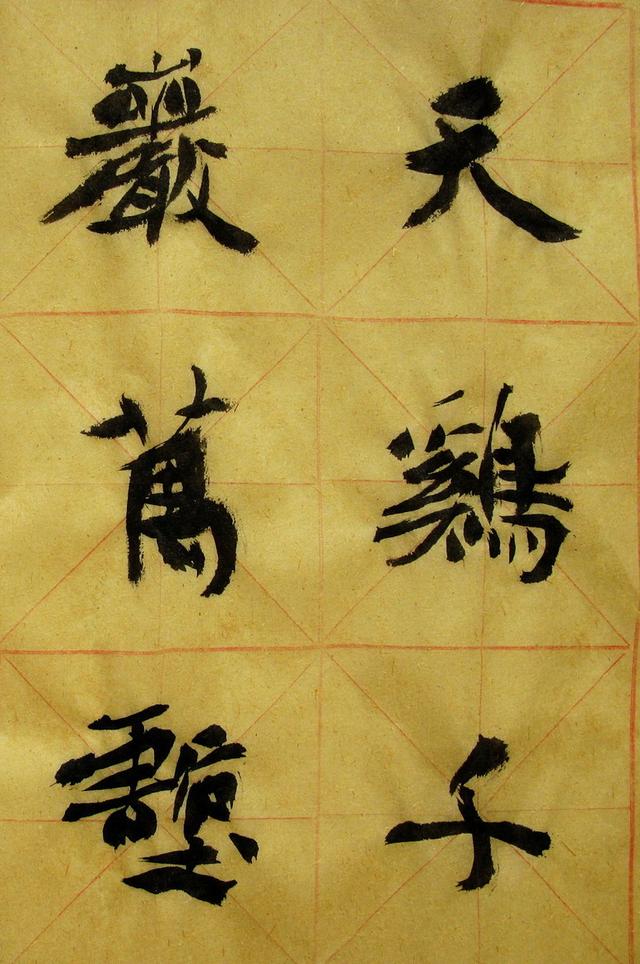 天鷄千
巖萬壑